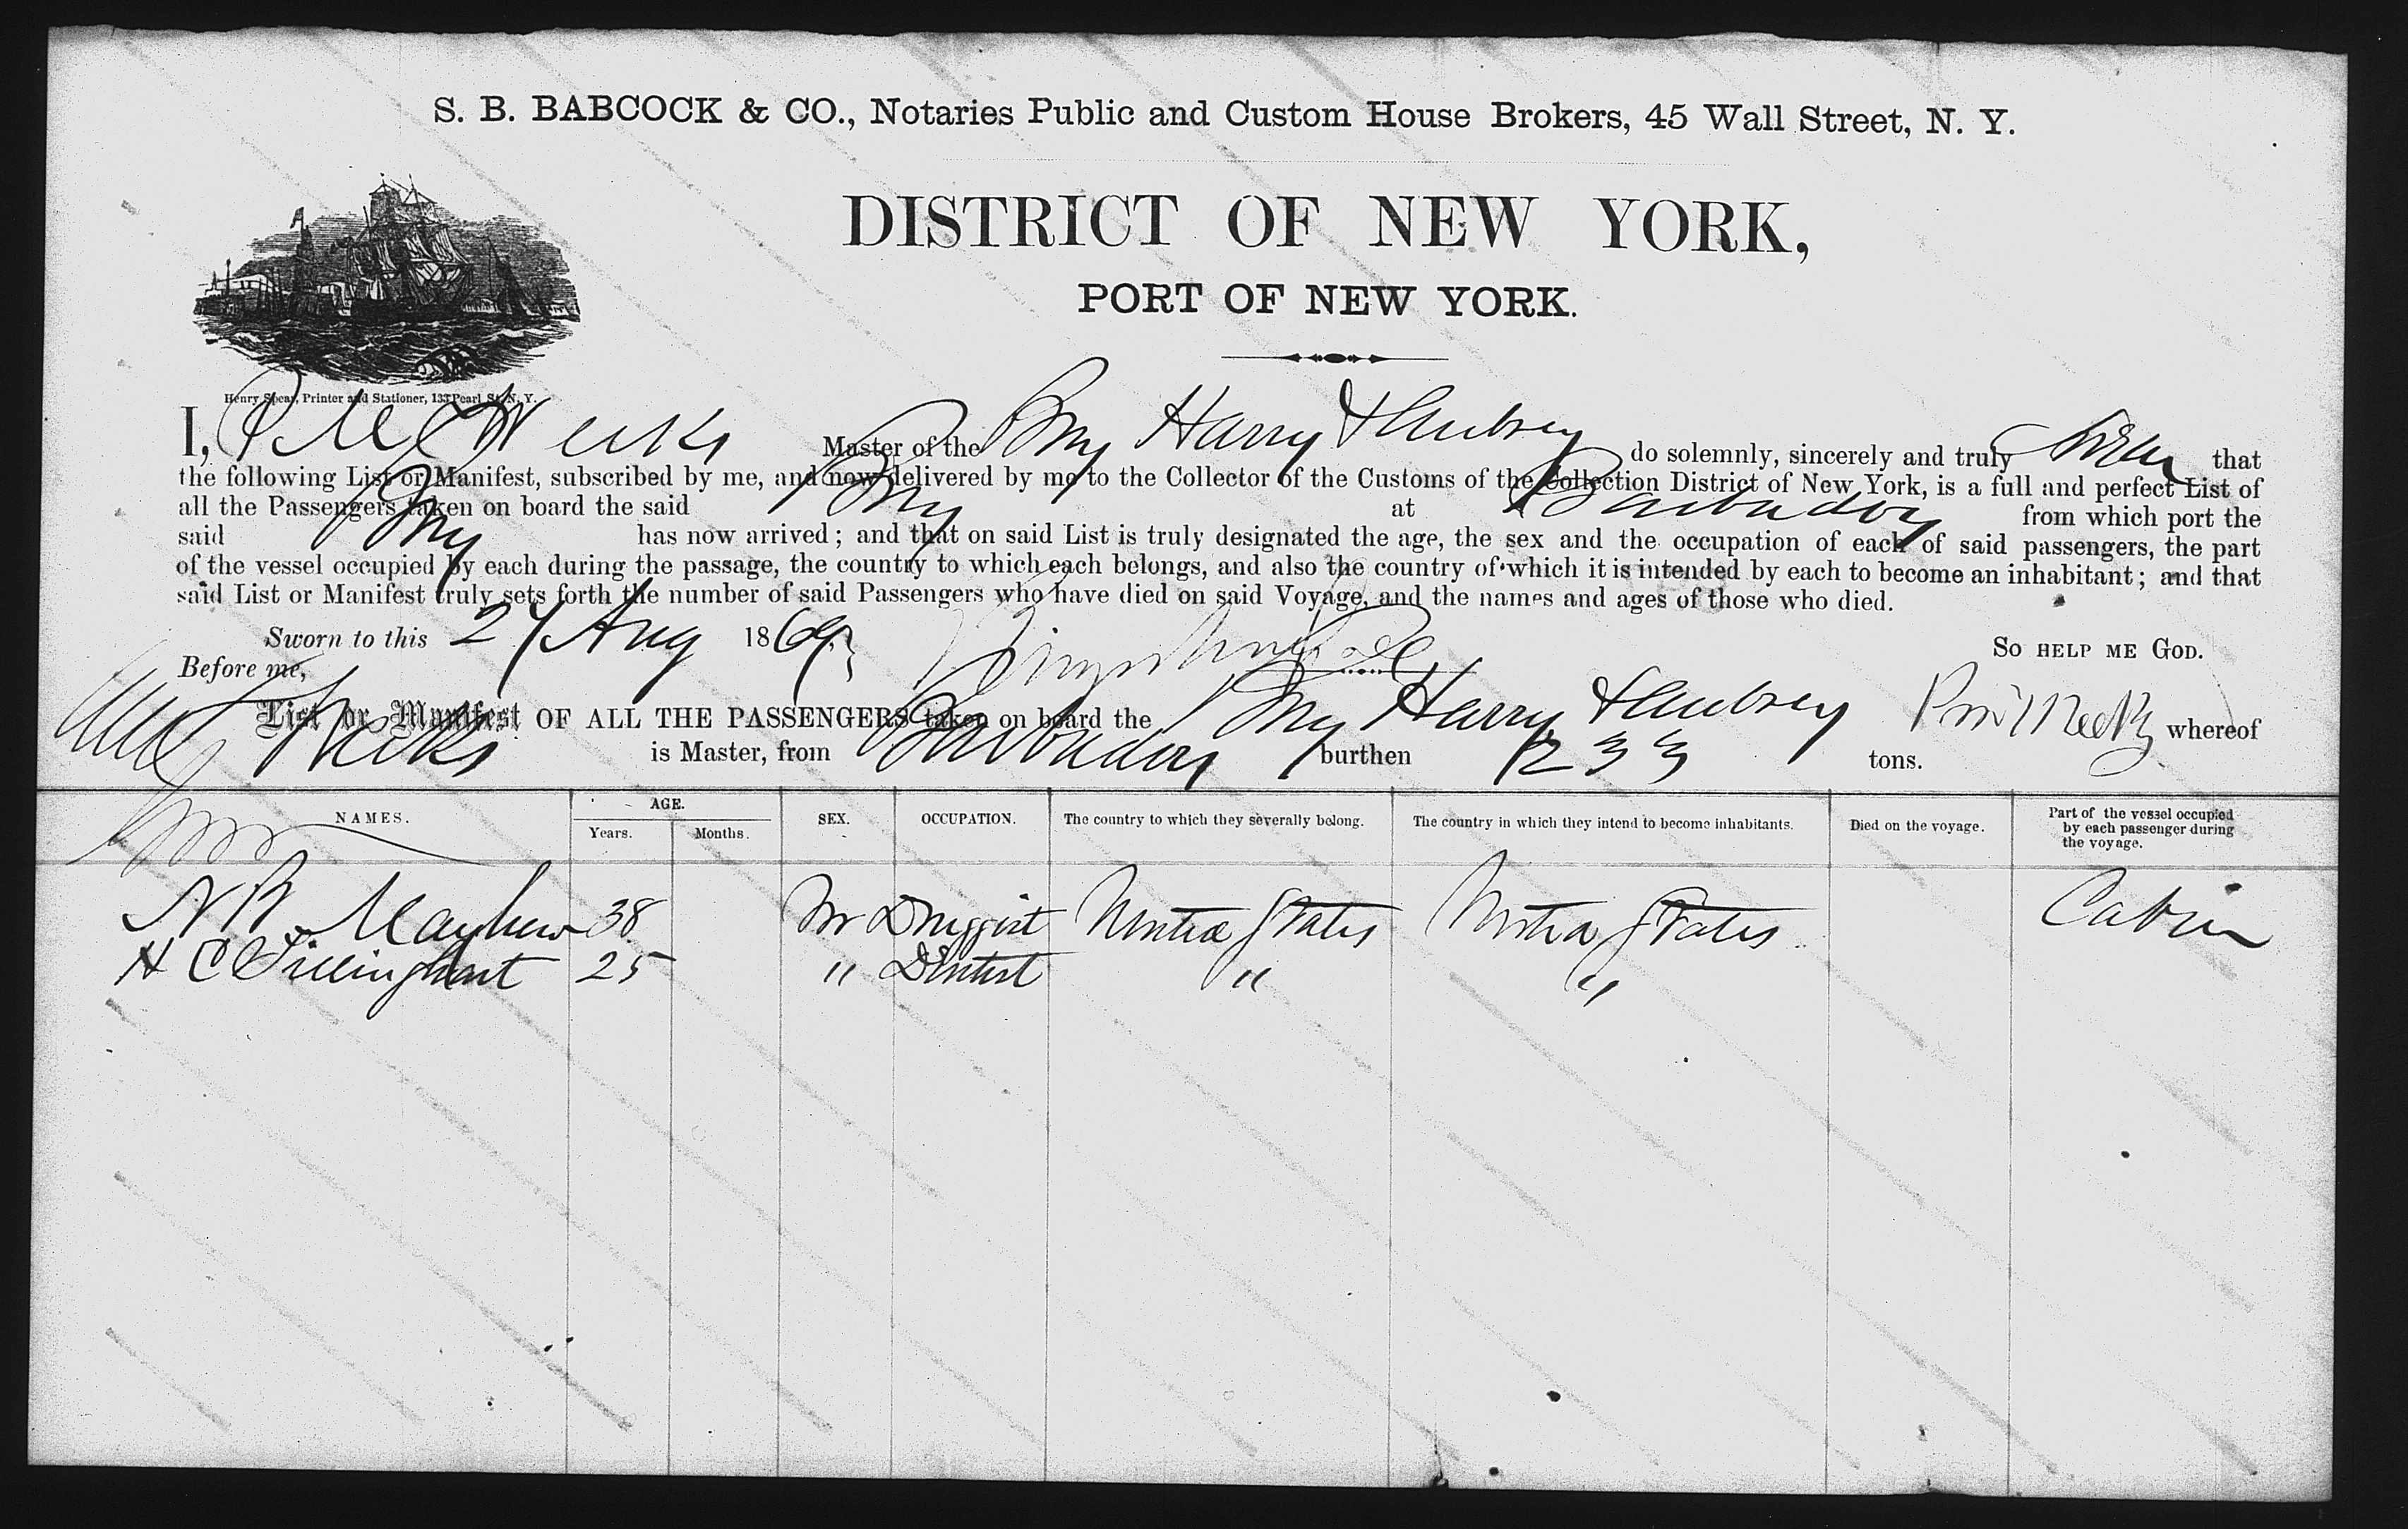 S. B. BABCOCK & CO., Notaries Public and Custom House Brokers, 45 Wall Street, N. Y.
DISTRICT OF NEW YORK,
PORT OF NEW YORK.
Henry Spear, Printer and Stationer, 133 Pearl St. N. Y.
I, Weeks Master of the Brig Harry & Aubrey do solemnly, sincerely and truly swear that
the following List or Manifest, subscribed by me, and now delivered by me to the Collector of the Customs of the Collection District of New York, is a full and perfect List of
all the Passengers taken on board the said Brig at Barbadoes from which port the
said Brig has now arrived; and that on said List is truly designated the age, the sex and the occupation of each of said passengers, the part
of the vessel occupied by each during the passage, the country to which each belongs, and also the country of which it is intended by each to become an inhabitant; and that
said List or Manifest truly sets forth the number of said Passengers who have died on said Voyage, and the names and ages of those who died.
Sworn to this 27 Aug 1869 SO HELP ME GOD.
Before me,
List or Manifest OF ALL THE PASSENGERS taken on board the Brig Harry & Aubrey whereof
Weeks is Master, from Barbadoes burthen 233 tons.
NAMES. AGE. Years. Months. SEX. OCCUPATION. The country to which they severally belong. The country in which they intend to become inhabitants. Died on the voyage. Part of the vessel occupied by each passenger during the voyage.
N B Mayhew 38 M Druggist United States United States Cabin
H C Tillinghast 25 " Dentist " "